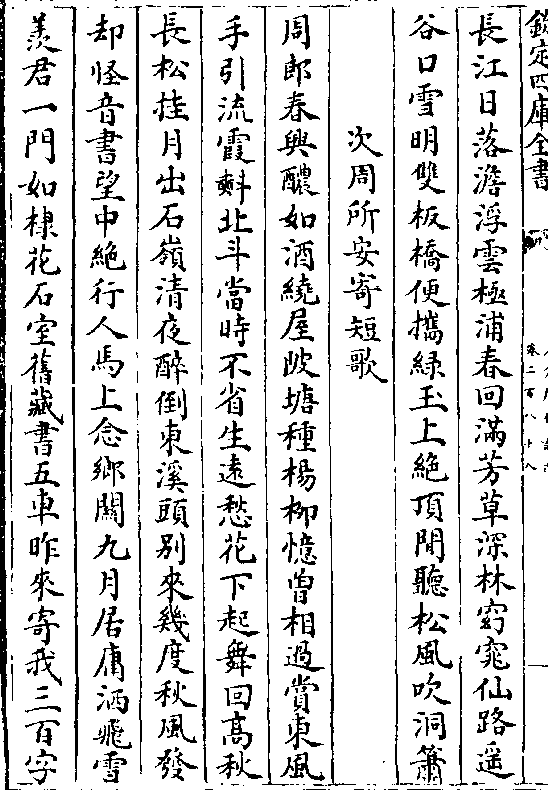 欽定四庫全書
卷二百八十八
長江日落澹浮雲極浦春回滿芳草深林窈窕仙路遥
谷口雪明雙板橋便攜緑玉上絶頂閒聽松風吹洞簫
次周所安寄短歌
周郎春興醲如酒繞屋陂塘種楊柳憶曽相過賞東風
手引流霞㪺北斗當時不省生遠愁花下起舞回髙秋
長松挂月出石嶺清夜醉倒東溪頭别來幾度秋風發
却怪音書望中絶行人馬上念鄉闗九月居庸洒飛雪
羡君一門如棣花石室舊藏書五車昨來寄我三百字